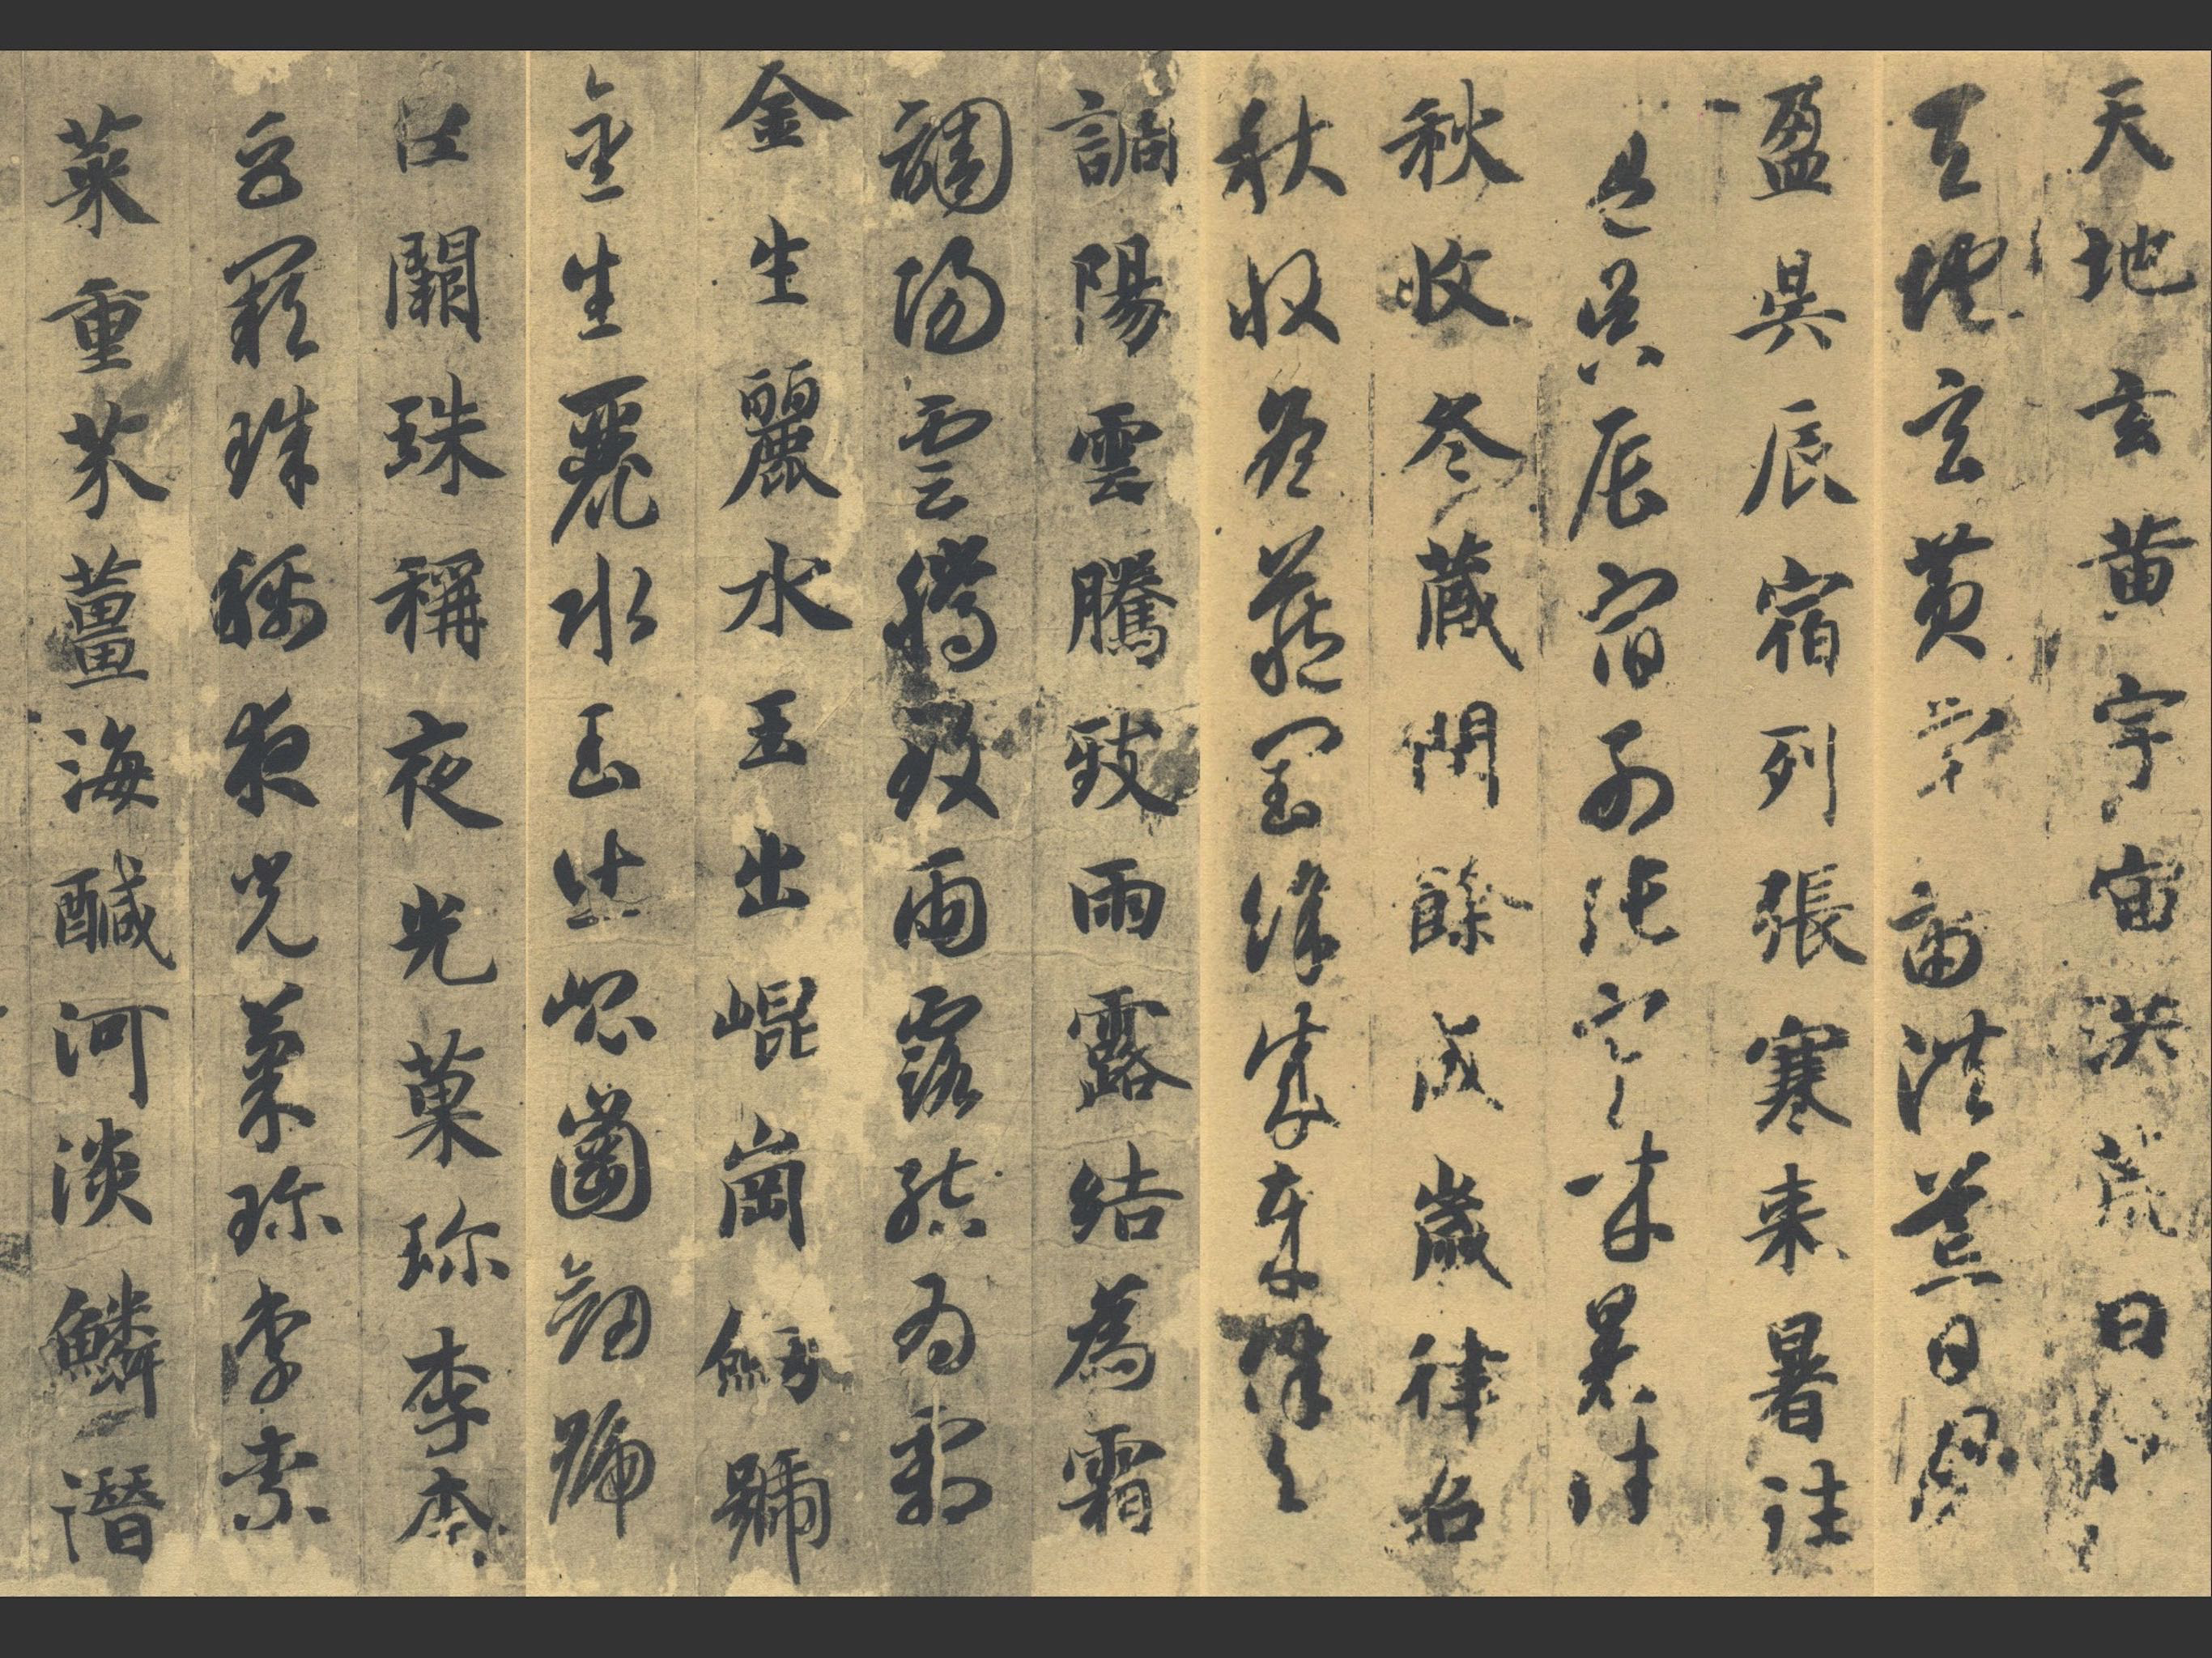 天地玄黄宇宙洪荒日
天地玄黄宇宙洪荒日月
盈昃辰宿列張寒来暑往
盈昃辰宿列張寒来暑往
秋收冬蔵閏餘成歲律召
秋收冬蔵閏餘成歲律召
調陽雲騰致雨露結為霜
調陽雲騰致雨露結為霜
金生麗水玉出崐崗劍號
金生麗水玉出崐崗劍號
巨闕珠稱夜光菓珎李柰
巨闕珠稱夜光菓珎李柰
菜重芥薑海醎河淡鱗潛